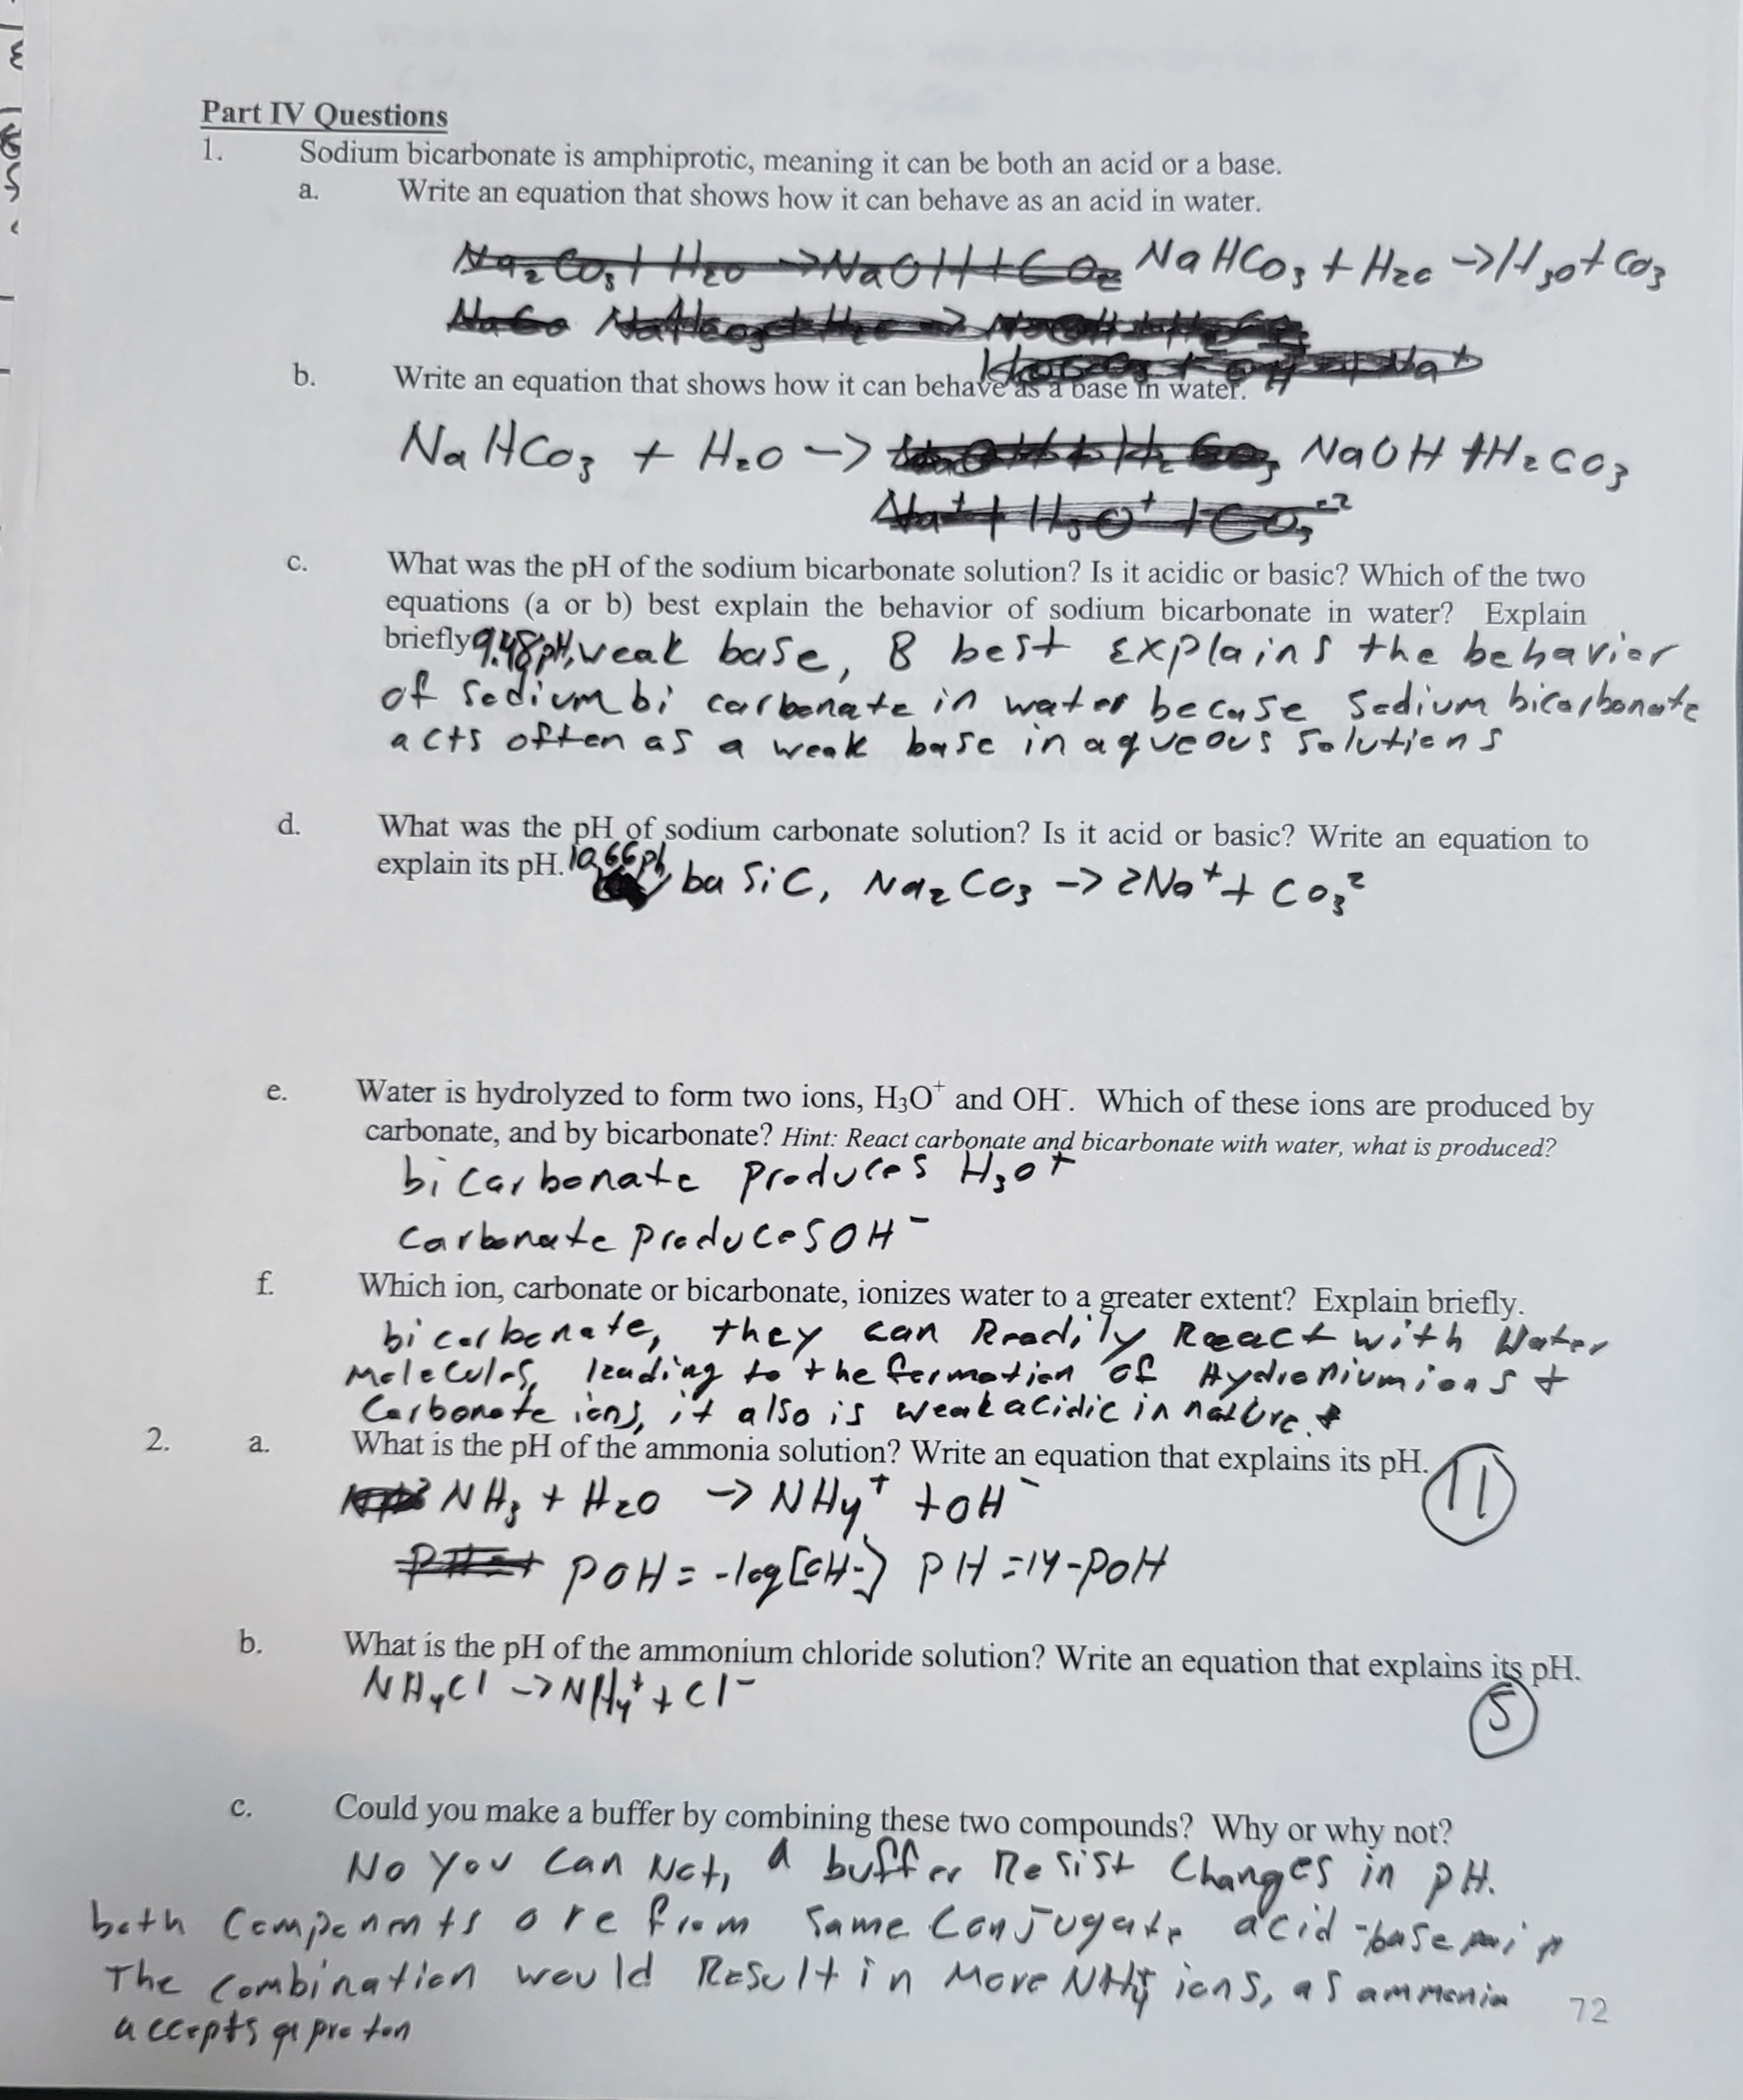 Part IV Questions
1. Sodium bicarbonate is amphiprotic, meaning it can be both an acid or a base.
a. Write an equation that shows how it can behave as an acid in water.
Na₂CO₃ + H₂O → NaOH + CO₂ NaHCO₃ + H₂O → H₃O + CO₃
b. Write an equation that shows how it can behave as a base in water.
NaHCO₃ + H₂O → NaOH + H₂CO₃
Na⁺ + H₃O⁺ + CO₃⁻²
c. What was the pH of the sodium bicarbonate solution? Is it acidic or basic? Which of the two
equations (a or b) best explain the behavior of sodium bicarbonate in water? Explain
briefly 9.48 pH, weak base, B best Explains the behavior
of sodium bi carbonate in water becuse sodium bicarbonate
acts often as a weak base in aqueous solutions
d. What was the pH of sodium carbonate solution? Is it acid or basic? Write an equation to
explain its pH. 10.66 ph, basic, Na₂CO₃ → 2Na⁺ + CO₃²
e. Water is hydrolyzed to form two ions, H₃O⁺ and OH⁻. Which of these ions are produced by
carbonate, and by bicarbonate? Hint: React carbonate and bicarbonate with water, what is produced?
bicarbonate produces H₃O⁺
carbonate produces OH⁻
f. Which ion, carbonate or bicarbonate, ionizes water to a greater extent? Explain briefly.
bicarbenate, they can Readily React with Water
Molecules, leading to the formation of Hydronium ions +
Carbonate ions, it also is weak acidic in nature.
2. a. What is the pH of the ammonia solution? Write an equation that explains its pH. 11
NH₃ + H₂O → NH₄⁺ + OH⁻
pOH = -log[OH-] pH = 14-pOH
b. What is the pH of the ammonium chloride solution? Write an equation that explains its pH.
NH₄Cl → NH₄⁺ + Cl⁻ 5
c. Could you make a buffer by combining these two compounds? Why or why not?
No you can Not, a buffer Resist Changes in pH.
both Components are from same Conjugate acid-base
The combination would Result in More NH₄⁺ ions, as ammonia
accepts a proton
72